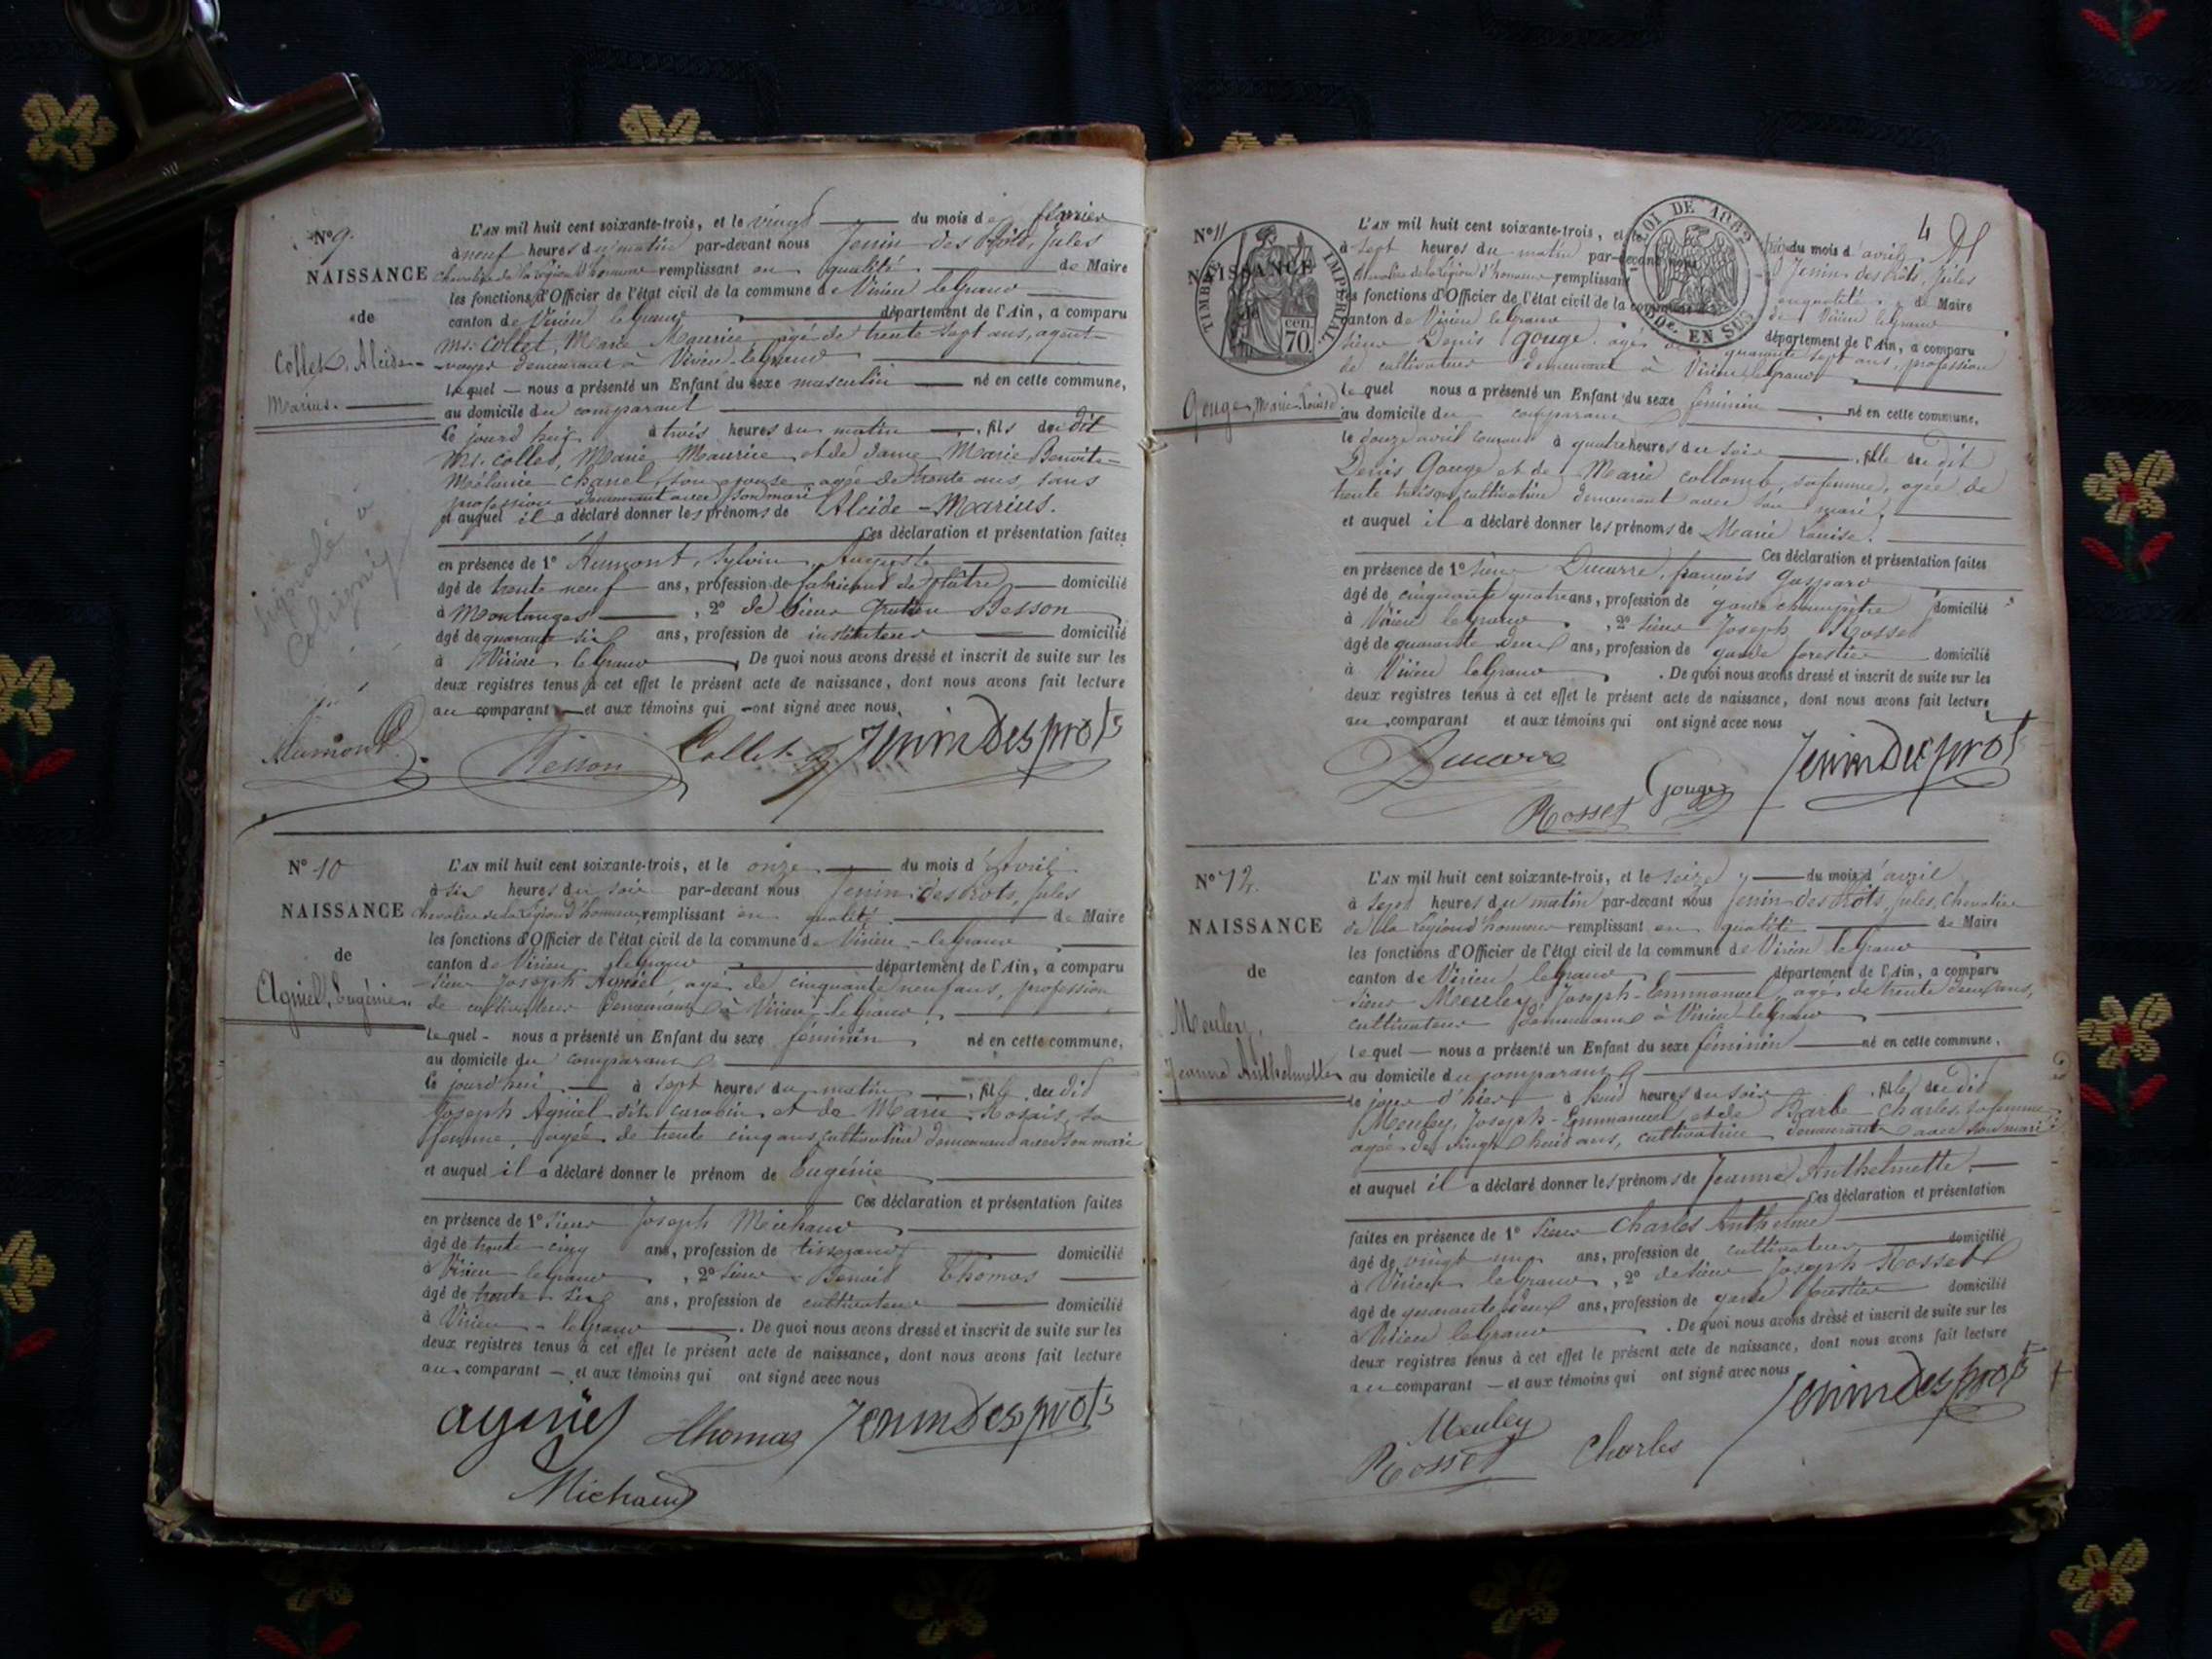 N° 9.
NAISSANCE
de
Collet, Alcide-
Marius.
L'AN mil huit cent soixante-trois, et le vingt du mois de février
à neuf heures du matin par-devant nous Jenin des Prôts, Jules
chevalier de la Légion d'honneur remplissant en qualité de Maire
les fonctions d'Officier de l'état civil de la commune de Virieu le grand
canton de Virieu le grand département de l'Ain, a comparu
Mr. Collet, Marie Maurice, agé de trente sept ans, agent-
voyer demeurant à Virieu-le-grand
lequel nous a présenté un Enfant du sexe masculin né en cette commune,
au domicile du comparant
ce jourd'hui à trois heures du matin, fils du dit
Mr. Collet, Marie Maurice et de dame Marie Benoite-
Mélanie Chanel, son épouse agée de trente ans, sans
profession demeurant avec son mari
et auquel il a déclaré donner les prénoms de Alcide-Marius.
Ces déclaration et présentation faites
en présence de 1° Aumont, Sylvin Auguste
âgé de trente neuf ans, profession de fabricant de plâtre domicilié
à Montanges, 2° de Sieur Besson
âgé de quarante six ans, profession de instituteur domicilié
à Virieu le grand. De quoi nous avons dressé et inscrit de suite sur les
deux registres tenus à cet effet le présent acte de naissance, dont nous avons fait lecture
au comparant et aux témoins qui ont signé avec nous.
signalé à
Coligny
Aumont Besson Collet Jenin des prôts
N° 10
NAISSANCE
de
Agniel, Eugénie
L'AN mil huit cent soixante-trois, et le onze du mois d'Avril
à six heures du soir par-devant nous Jenin des Prôts, Jules
chevalier de la Légion d'honneur, remplissant en qualité de Maire
les fonctions d'Officier de l'état civil de la commune de Virieu-le grand
canton de Virieu le grand département de l'Ain, a comparu
Sieur Joseph Agniel, agé de cinquante neuf ans, profession
de cultivateur demeurant à Virieu-le grand
lequel nous a présenté un Enfant du sexe féminin né en cette commune,
au domicile du comparant
ce jourd'hui à sept heures du matin, fille du dit
Joseph Agniel dit carabin et de Marie Rosais, sa
femme, agée de trente cinq ans, cultivatrice demeurant avec son mari
et auquel il a déclaré donner le prénom de Eugénie
Ces déclaration et présentation faites
en présence de 1° Sieur Joseph Michaud
âgé de trente cinq ans, profession de tisserand domicilié
à Virieu-le grand, 2° Sieur Benoit Thomas
âgé de trente six ans, profession de cultivateur domicilié
à Virieu-le grand. De quoi nous avons dressé et inscrit de suite sur les
deux registres tenus à cet effet le présent acte de naissance, dont nous avons fait lecture
au comparant et aux témoins qui ont signé avec nous
agniel Thomas Jenin des prôts
Michaud
4
N° 11
TIMBRE IMPERIAL
cen. 70.
LOI DE 1862
EN SUS
NAISSANCE
de
Gouge, Marie-Louise
L'AN mil huit cent soixante-trois, et le du mois d'avril
à sept heures du matin par-devant nous Jenin des Prôts, Jules
chevalier de la Légion d'honneur, remplissant en qualité de Maire
les fonctions d'Officier de l'état civil de la commune de Virieu le grand
canton de Virieu le grand département de l'Ain, a comparu
Sieur Denis Gouge, agé de quarante sept ans, profession
de cultivateur demeurant à Virieu le grand
lequel nous a présenté un Enfant du sexe féminin né en cette commune,
au domicile du comparant
le douze avril courant à quatre heures du soir, fille du dit
Denis Gouge et de Marie Collomb, sa femme, agée de
trente trois ans, cultivatrice demeurant avec son mari,
et auquel il a déclaré donner les prénoms de Marie Louise.
Ces déclaration et présentation faites
en présence de 1° Sieur Ducarre, françois Gaspard
âgé de cinquante quatre ans, profession de garde champêtre domicilié
à Virieu le grand, 2° Sieur Joseph Rosset
âgé de quarante deux ans, profession de garde forestier domicilié
à Virieu le grand. De quoi nous avons dressé et inscrit de suite sur les
deux registres tenus à cet effet le présent acte de naissance, dont nous avons fait lecture
au comparant et aux témoins qui ont signé avec nous
Ducarre Gouge Jenin des prôts
Rosset
N° 12.
NAISSANCE
de
Meuley,
Jeanne Anthelmette
L'AN mil huit cent soixante-trois, et le seize du mois d'avril
à sept heures du matin par-devant nous Jenin des Prôts, Jules, Chevalier
de la Légion d'honneur remplissant en qualité de Maire
les fonctions d'Officier de l'état civil de la commune de Virieu le grand
canton de Virieu le grand département de l'Ain, a comparu
Sieur Meuley, Joseph-Emmanuel, agé de trente deux ans,
cultivateur demeurant à Virieu le grand
lequel nous a présenté un Enfant du sexe féminin né en cette commune,
au domicile du comparant
le jour d'hier à huit heures du soir, fille du dit
Meuley, Joseph-Emmanuel et de Barbe Charles, sa femme
agée de vingt huit ans, cultivatrice demeurant avec son mari
et auquel il a déclaré donner les prénoms de Jeanne Anthelmette.
Ces déclaration et présentation
faites en présence de 1° Sieur Charles Anthelme
âgé de vingt ans, profession de cultivateur domicilié
à Virieu le grand, 2° de Sieur Joseph Rosset
âgé de quarante deux ans, profession de garde forestier domicilié
à Virieu le grand. De quoi nous avons dressé et inscrit de suite sur les
deux registres tenus à cet effet le présent acte de naissance, dont nous avons fait lecture
au comparant et aux témoins qui ont signé avec nous
Meuley Jenin des prôts
Rosset Charles